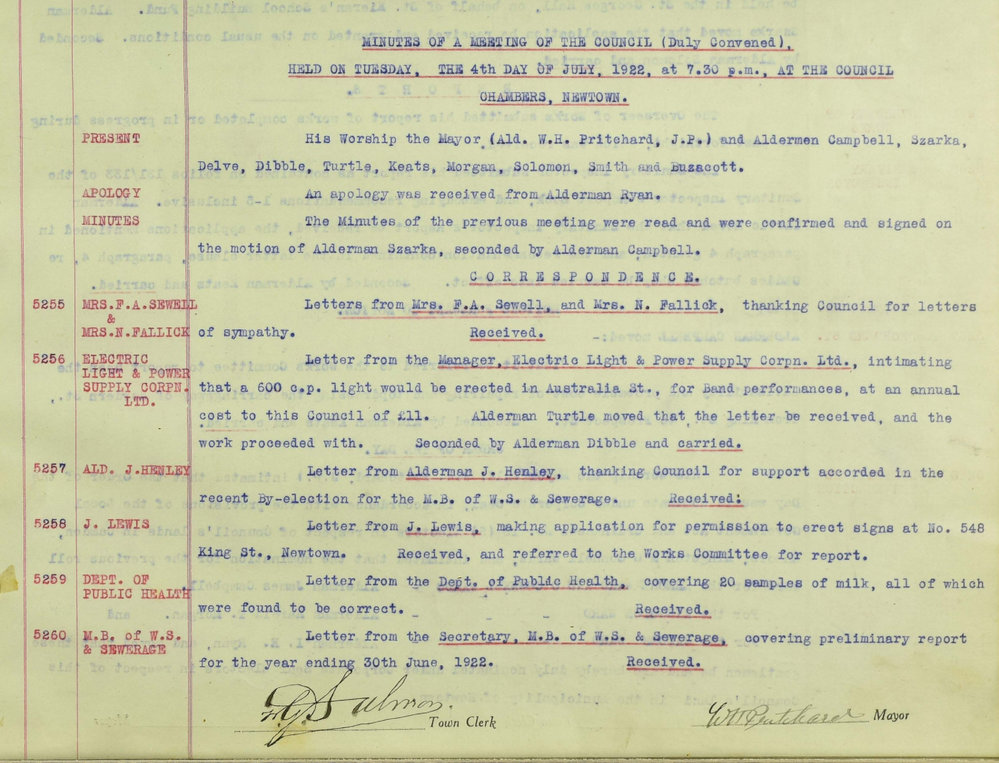 MINUTES OF A MEETING OF THE COUNCIL (Duly Convened),
HELD ON TUESDAY, THE 4th DAY OF JULY, 1922, at 7.30 p.m., AT THE COUNCIL
CHAMBERS, NEWTOWN.
PRESENT His Worship the Mayor (Ald. W.H. Pritchard, J.P.) and Aldermen Campbell, Szarka,
Delve, Dibble, Turtle, Keats, Morgan, Solomon, Smith and Buzacott.
APOLOGY An apology was received from Alderman Ryan.
MINUTES The Minutes of the previous meeting were read and were confirmed and signed on
the motion of Alderman Szarka, seconded by Alderman Campbell.
C O R R E S P O N D E N C E.
5255 MRS.F.A.SEWELL Letters from Mrs. F.A. Sewell, and Mrs. N. Fallick, thanking Council for letters
&
MRS.N.FALLICK of sympathy. Received.
5256 ELECTRIC Letter from the Manager, Electric Light & Power Supply Corpn. Ltd., intimating
LIGHT & POWER
SUPPLY CORPN. that a 600 c.p. light would be erected in Australia St., for Band performances, at an annual
LTD.
cost to this Council of £11. Alderman Turtle moved that the letter be received, and the
work proceeded with. Seconded by Alderman Dibble and carried.
5257 ALD. J.HENLEY Letter from Alderman J. Henley, thanking Council for support accorded in the
recent By-election for the M.B. of W.S. & Sewerage. Received.
5258 J. LEWIS Letter from J. Lewis, making application for permission to erect signs at No. 548
King St., Newtown. Received, and referred to the Works Committee for report.
5259 DEPT. OF Letter from the Dept. of Public Health, covering 20 samples of milk, all of which
PUBLIC HEALTH
were found to be correct. Received.
5260 M.B. of W.S. Letter from the Secretary, M.B. of W.S. & Sewerage, covering preliminary report
& SEWERAGE
for the year ending 30th June, 1922. Received.
Salmon. Town Clerk WH Pritchard Mayor